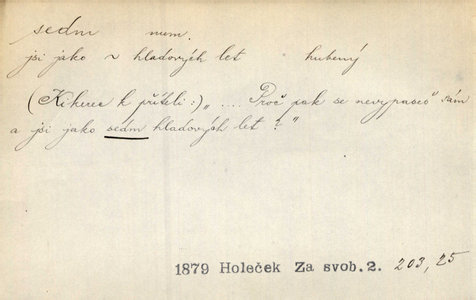 sedm num.
jsi jako ~ hladových let hubený
(Kikerea k příteli:) „.... Proč pak se nevypaseš sám
a jsi jako sedm hladových let?"
1879 Holeček Za svob. 2. 203, 25